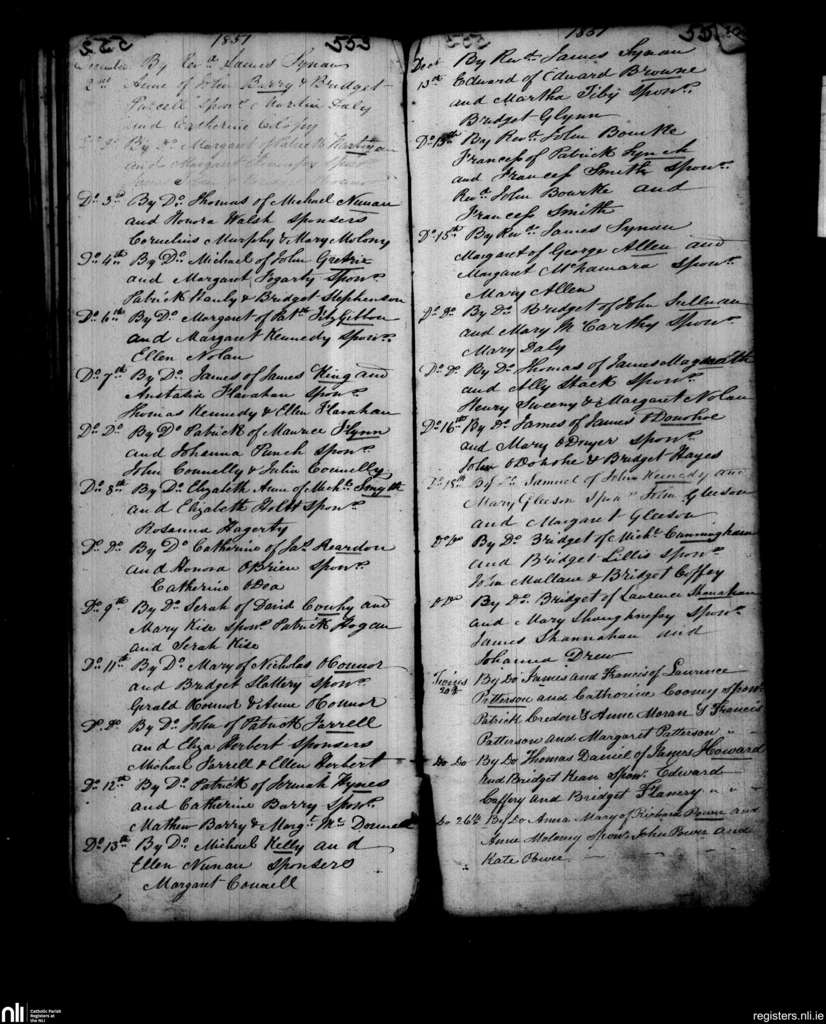 552 1851 553
December By Revd. James Synan
2nd Anne of John Barry & Bridget
Purcell Sponrs Daly
and Catherine
By Do. Margaret of Patrick
and Margaret
Do. 3rd By Do. Thomas of Michael Nunan
and Honora Walsh Sponsers
Cornelius Murphy & Mary Molony
Do. 4th By Do. Michael of John
and Margaret Fogarty Sponrs.
Patrick & Bridget Stephenson
Do. 6th By Do. Margaret of Patk. FitzGibbon
and Margaret Kennedy Sponrs.
Ellen Nolan
Do. 7th By Do. James of James King and
Anstatia Flanahan Sponrs.
Thomas Kennedy & Ellen Flanahan
Do. Do. By Do. Patrick of Maurice Flynn
and Johanna Punch Sponrs.
John Connelly & Julia Connelly
Do. 8th By Do. Elizabeth Anne of Michl. Smyth
and Elizabeth Holst Sponrs.
Rosanna Hagerty
Do. Do. By Do. Catherine of Jas. Reardon
and Honora OBrien Sponrs.
Catherine ODea
Do. 9th By Do. Serah of David and
Mary Kise Sponrs. Patrick Hogan
and Serah Kise
Do. 11th By Do. Mary of Nicholas OConnor
and Bridget Slattery Sponrs.
Gerald OConnor & Anne OConnor
Do. Do. By Do. John of Patrick Farrell
and Eliza Herbert Sponsers
Michael Farrell & Ellen Herbert
Do. 12th By Do. Patrick of Jermiah Hynes
and Catherine Barry Sponrs.
Mathew Barry & Margt. Mc Donnell
Do. 13th By Do. Michael Kelly and
Ellen Nunan Sponsers
Margaret Connell
1851 55
Decr. By Revd. James Synan
13th Edward of Edward Browne
and Martha Sponrs.
Bridget Glynn
Do. 13th By Revd. John Bourke
Francess of Patrick Lynch
and Francess Smith Sponrs.
Revd. John Bourke and
Francess Smith
Do. 15th By Revd. James Synan
Margaret of George Allen and
Margaret McNamara Sponrs.
Mary Allen
Do. Do. By Do. Bridget of John Sullivan
and Mary McCarthy Sponrs.
Mary Daly
Do. Do. By Do. Thomas of James
and Ally Stack Sponrs.
Henry Sweeny & Margaret Nolan
Do. 16th By Do. James of James ODonohoe
and Mary ODwyer Sponrs.
John ODonohoe & Bridget Hayes
Do. 18th By Do. Samuel of John Kennedy and
Mary Gleeson Sponrs John Gleeson
and Margaret Gleeson
Do. Do. By Do. Bridget of Michl. Cunningham
and Bridget Lillis Sponrs.
John Mullane & Bridget Coffey
Do. Do. By Do. Bridget of Laurence Shanahan
and Mary Shaughnessy Sponrs.
James Shannahan and
Johanna Drew
Twins By Do James and Francis of Laurence
20th Petterson and Catherine Cooney Sponrs
Patrick Credon & Anne Moran & Francis
Patterson and Margaret Patterson
Do Do By Do Thomas Daniel of James Howard
and Bridget Hean Sponrs. Edward
Caffery and Bridget Flanery
Do 26th By Do Anna Mary of Richard Power and
Anne Molony Sponrs. John Power and
Kate Power
nli Catholic Parish
Registers at
the NLI
registers.nli.ie